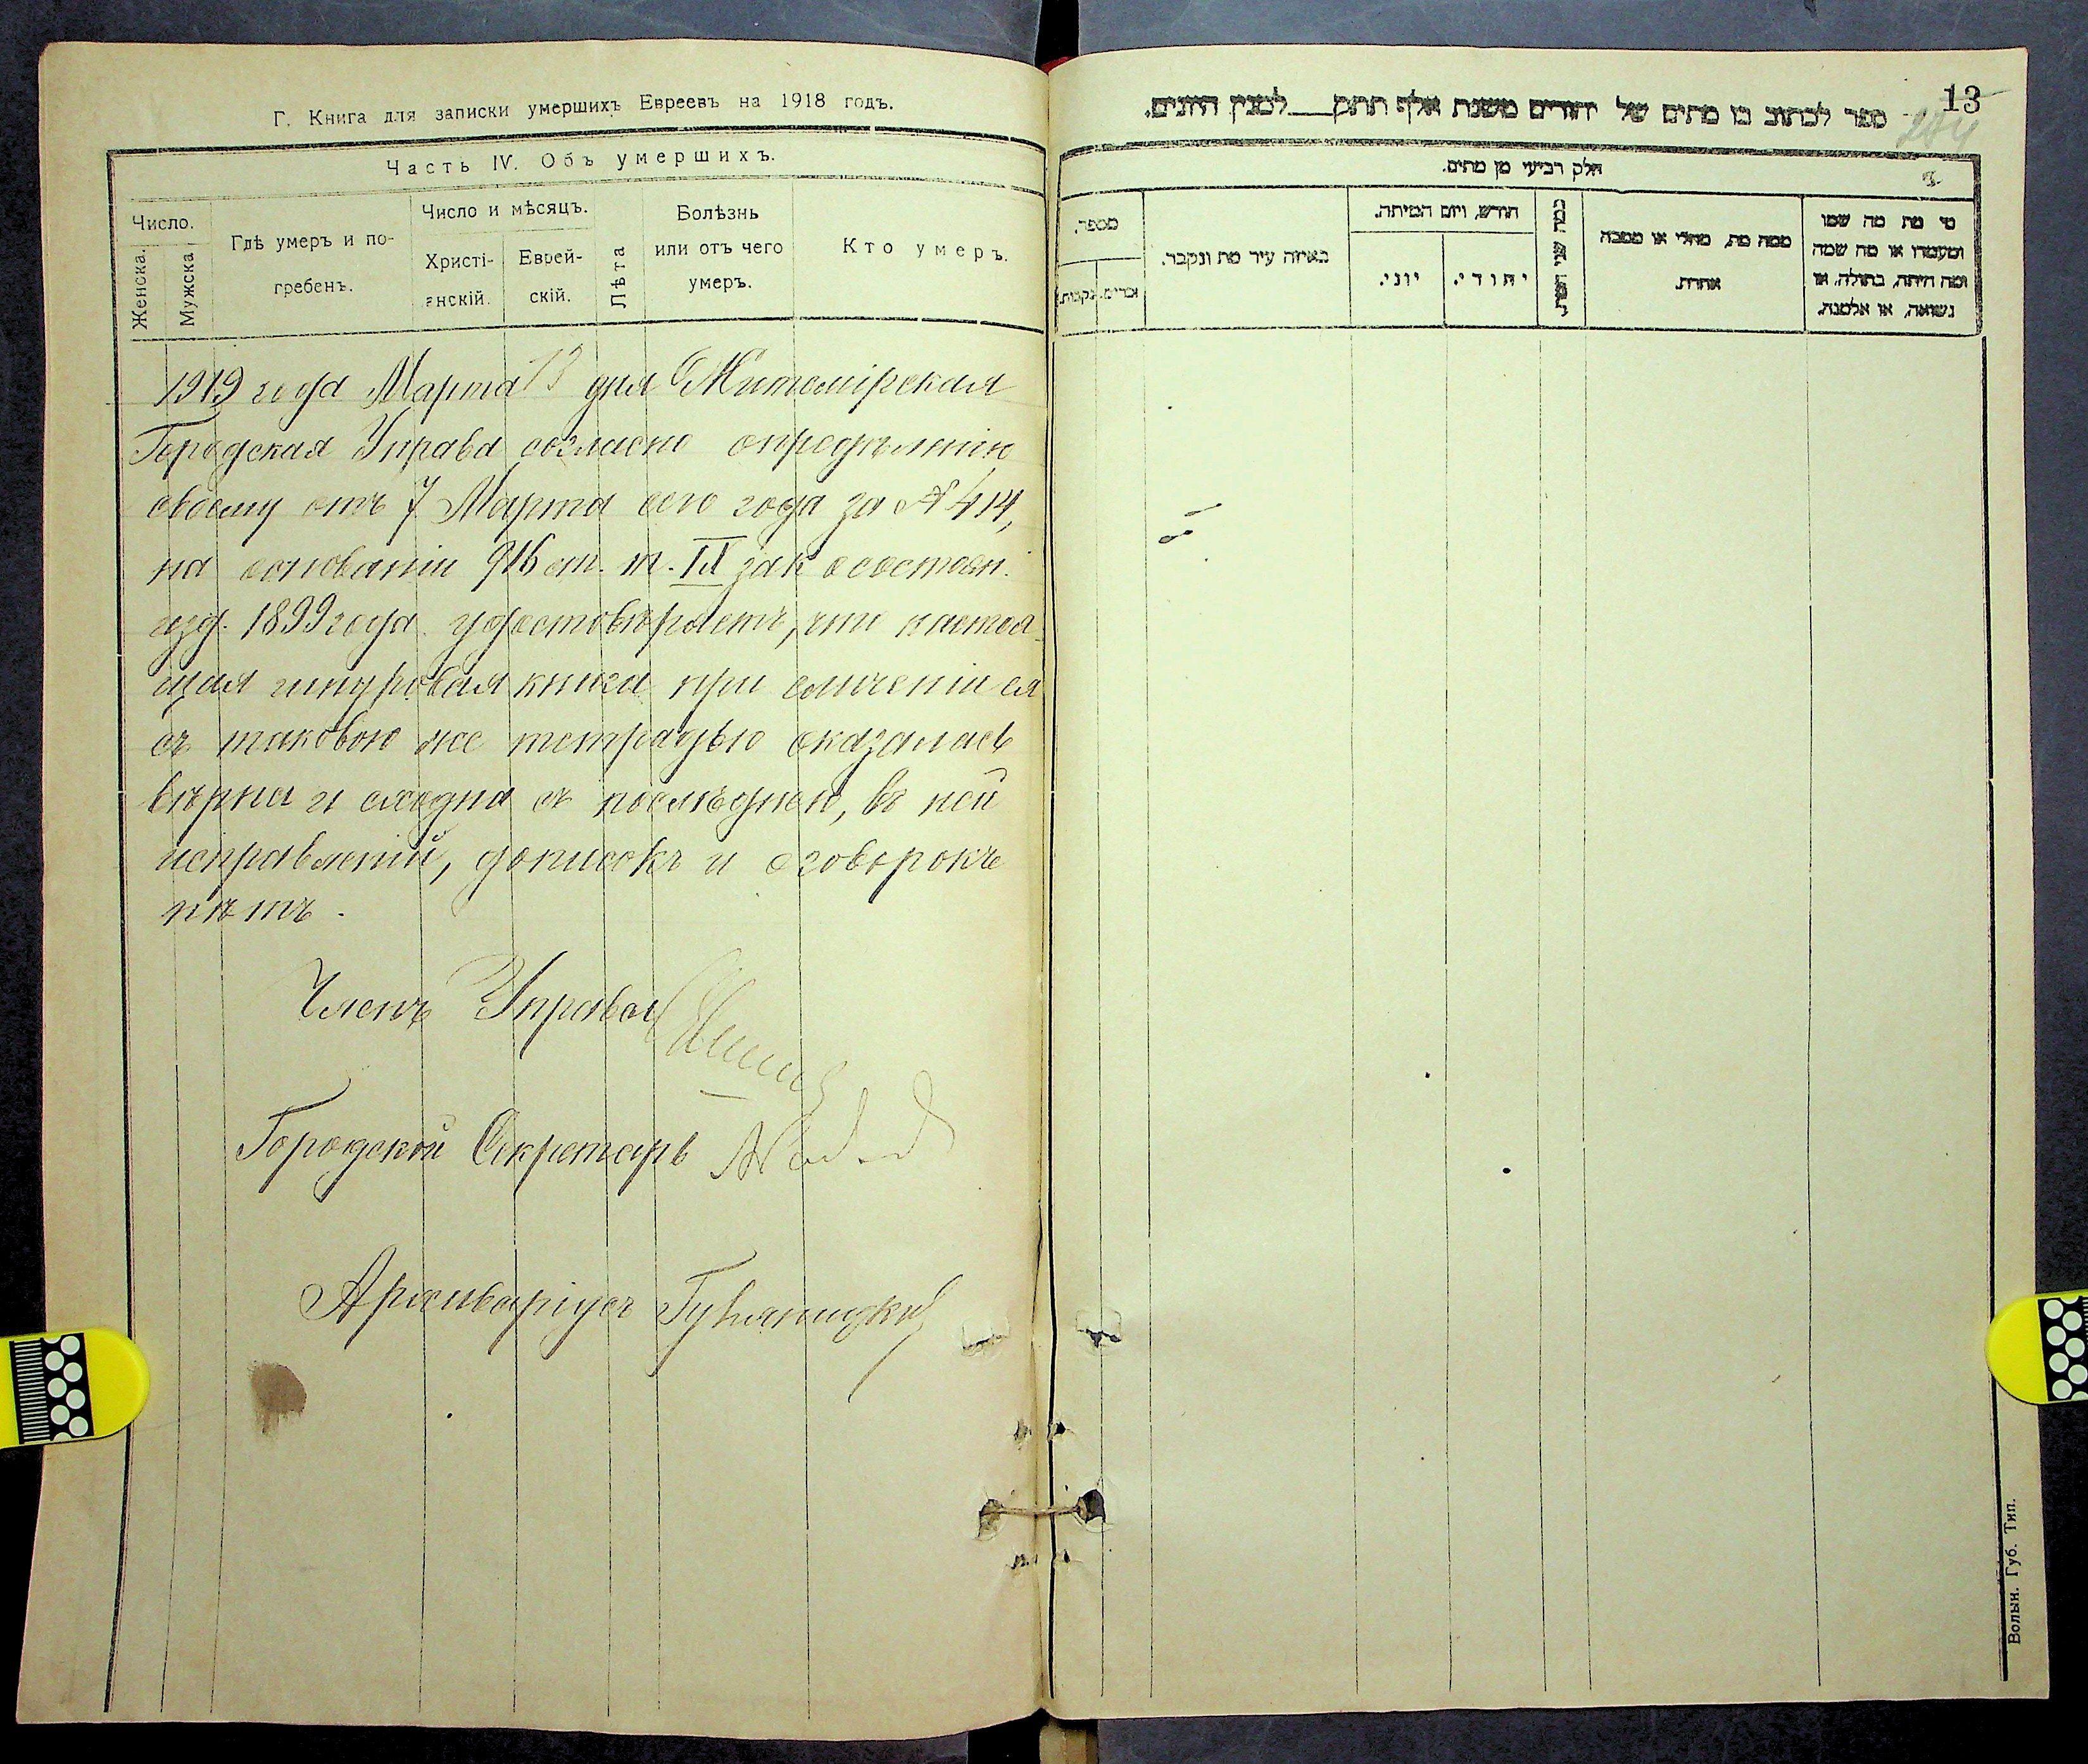 Г. Книга для записки умершихъ Евреевъ на 1918 годъ.
Часть IV. Объ умершихъ.
Число.
Женска.
Мужска
Гдѣ умеръ и по-
гребенъ.
Число и мѣсяцъ.
Христі-
анскій.
Еврей-
скій.
Лѣта
Болѣзнь
или отъ чего
умеръ.
Кто умеръ.
1919 года Марта 13 дня Житомірская
Городская Управа согласно опредѣленію
своему отъ 7 Марта сего года за № 414,
на основаніи 916 ст. т. IX зак о состоян.
изд. 1899 года удостовѣряетъ, что настоя-
щая шнуровая книга при сличеніи ея
съ таковою же тетрадью оказалась
вѣрна и сходна съ послѣднею, въ ней
исправленій, дописокъ и оговорокъ
нѣтъ.
Членъ Управы
Городской Секретарь
Архиваріусъ
13
ספר לכתוב בו מתים של יהודים משנת אלף תתק למנין היונים.
חלק רביעי מן מתים.
מספר.
זכרים.
נקבות.
באיזה עיר מת ונקבר.
חודש, ויום המיתה.
יוני.
יהודי.
כמה שני המת.
ממה מת, מחלי או מסבה
אחרת.
מי מת מה שמו
ומעמדו או מה שמה
ומה היתה, בתולה, או
נשואה, או אלמנה.
Волын. Губ. Тип.